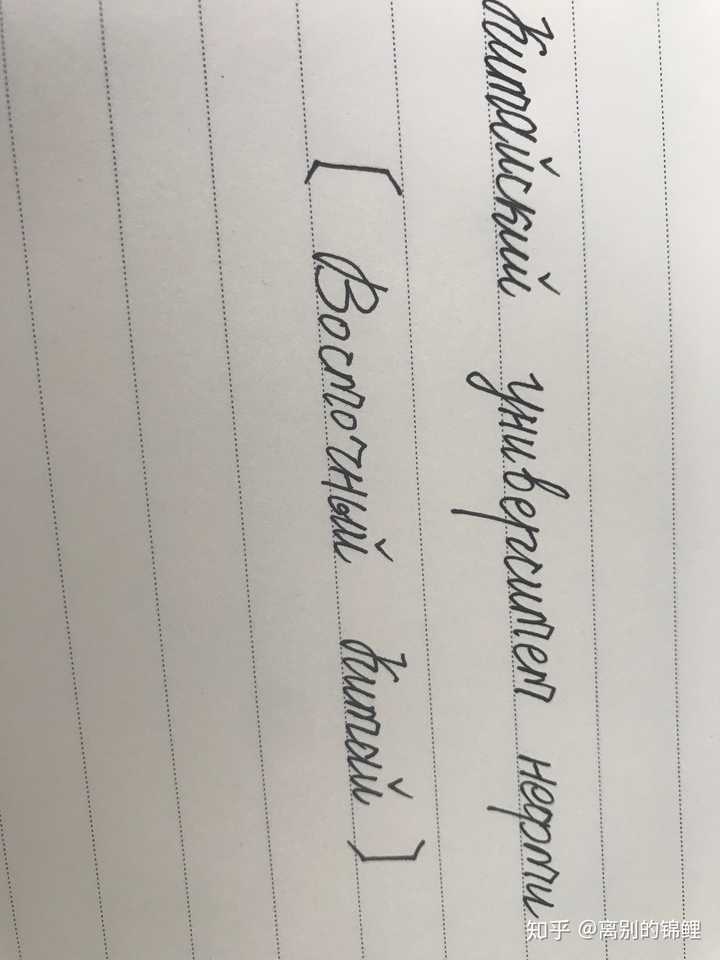 Китайский университет нефти
[ Восточный Китай ]
知乎 @离别的锦鲤